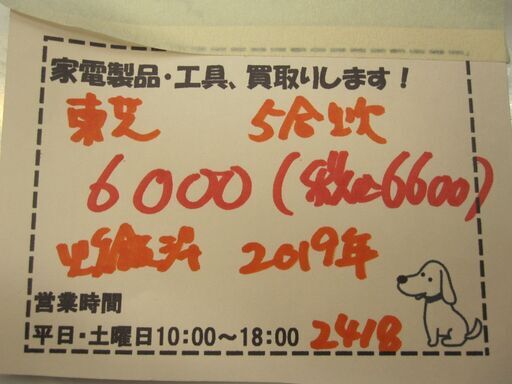 家電製品・工具、買取りします!
東芝 5合炊
6000(税込6600)
炊飯ジャー 2019年
営業時間
平日・土曜日10:00～18:00 2418